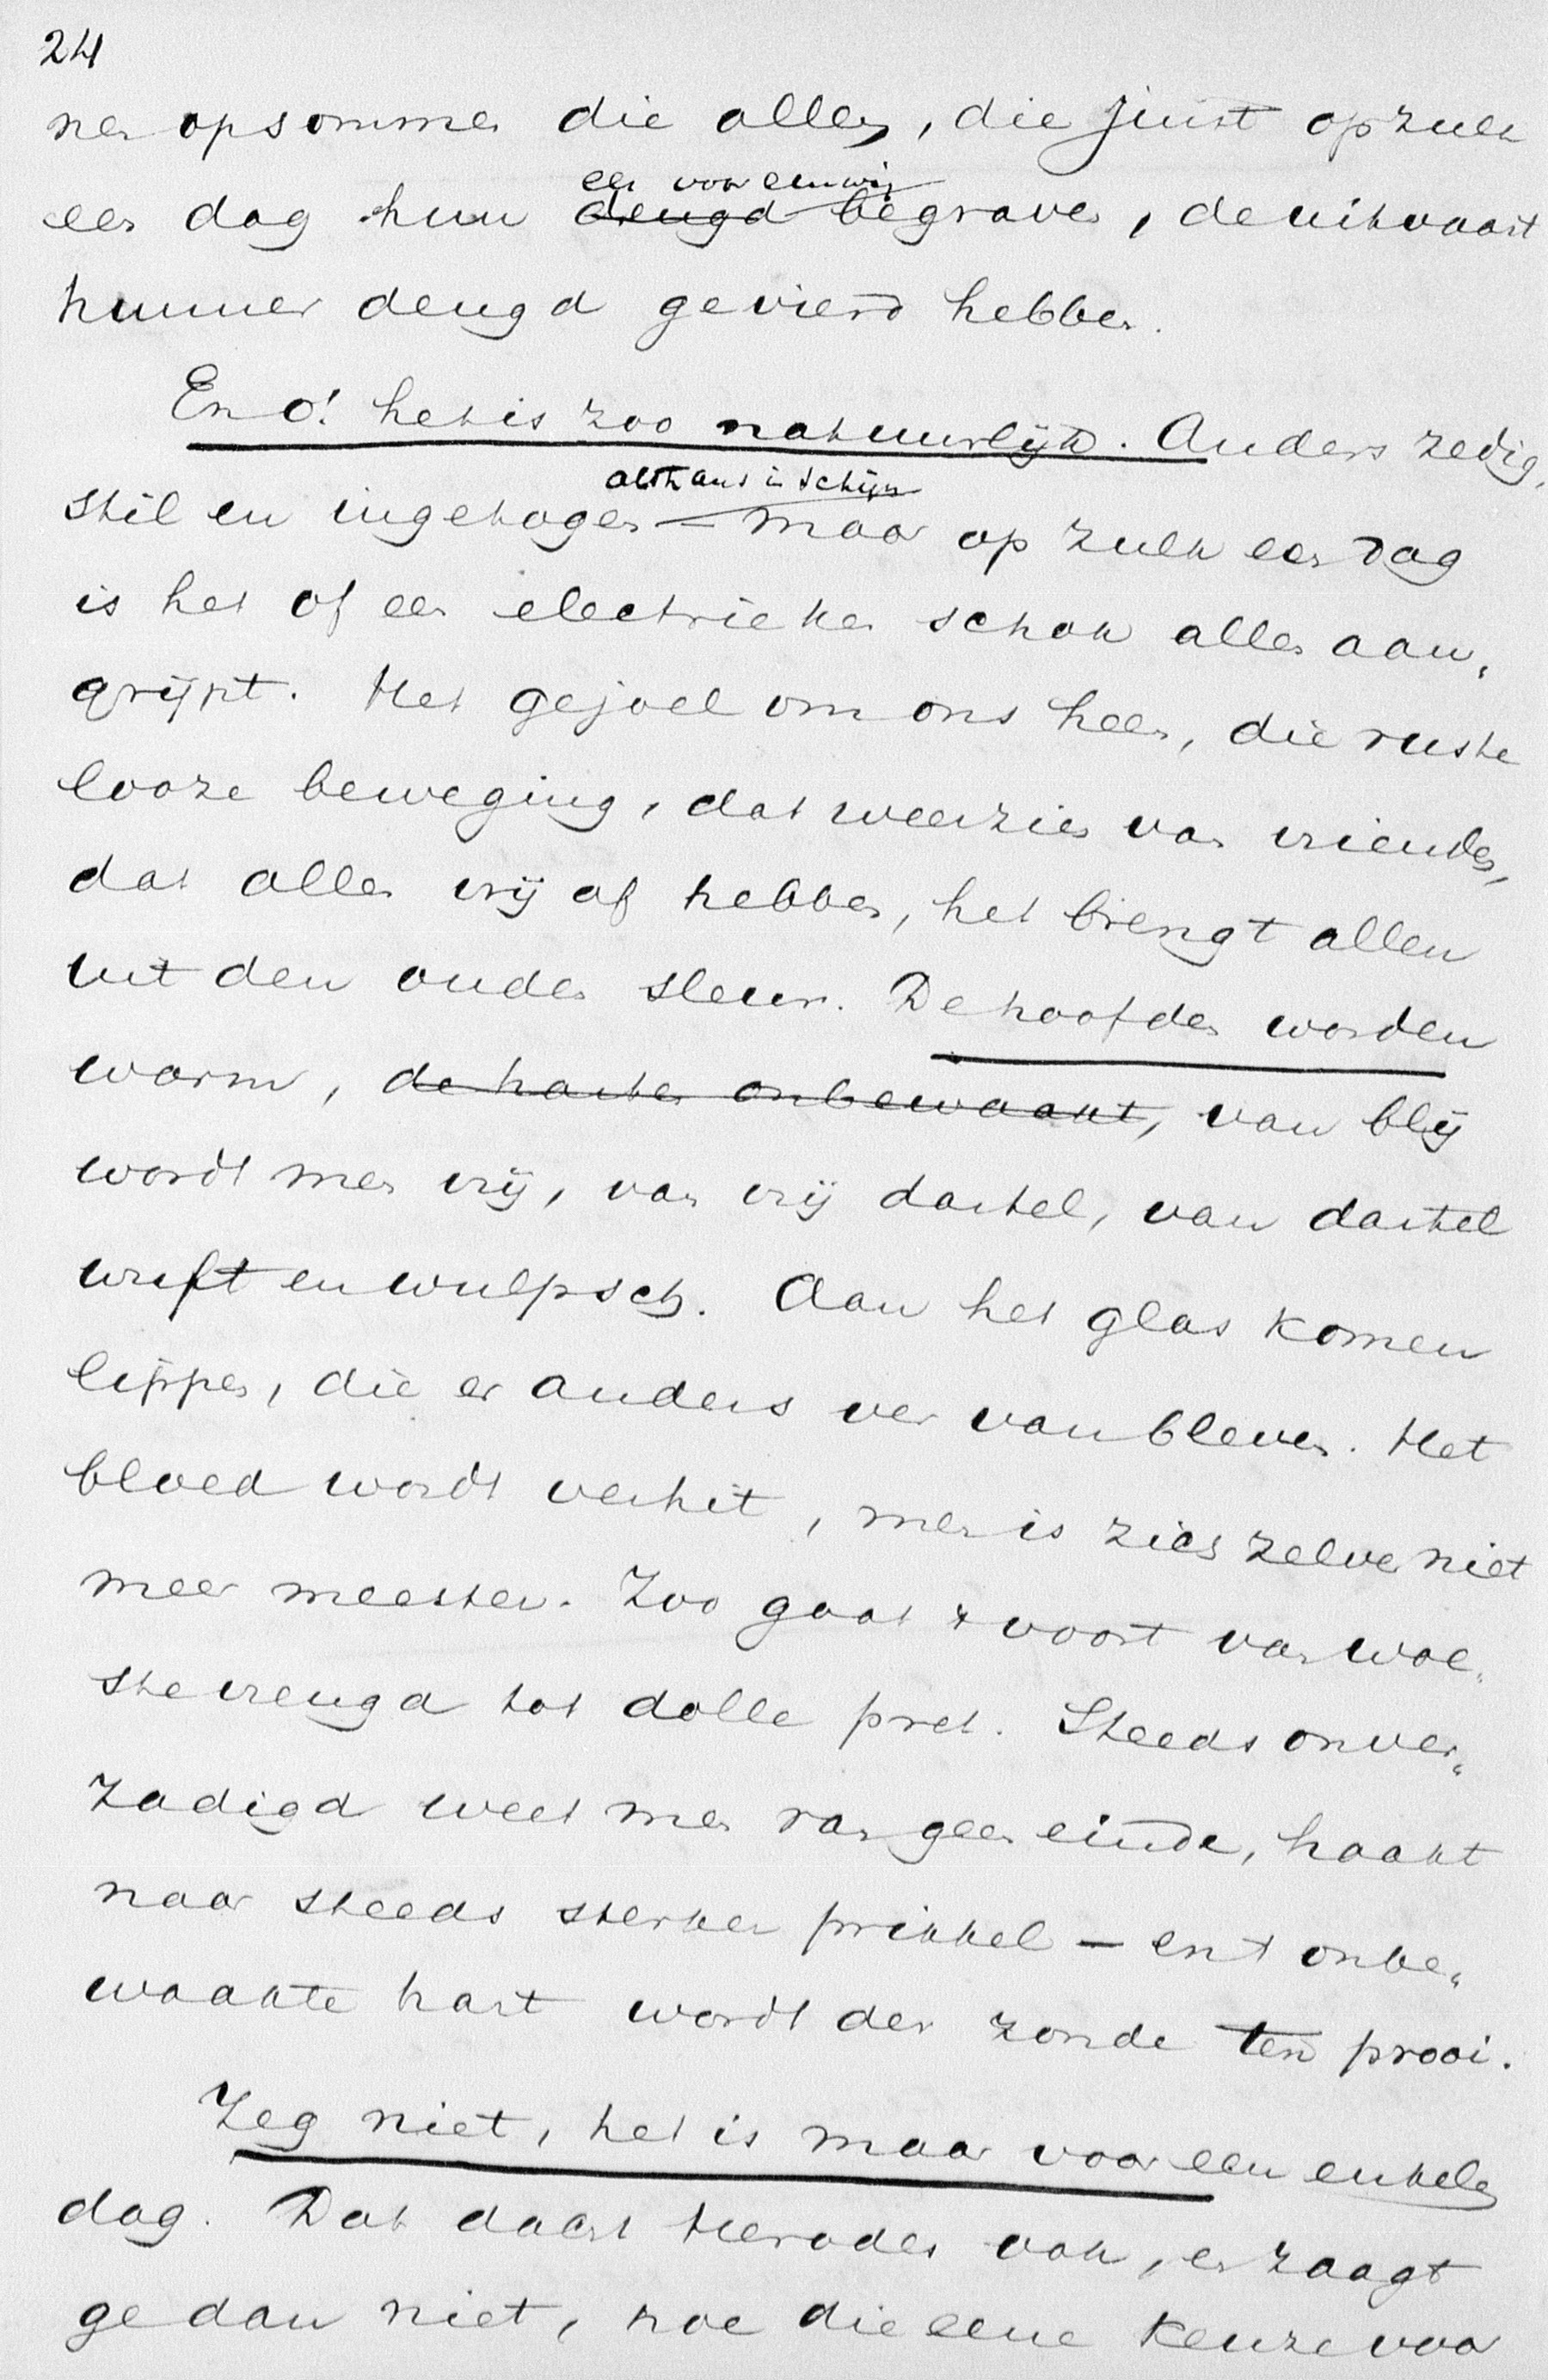 24
nen opsommen die allen, die juist op zulk
een dag hun deugd begraven, de uitvaart
eer voor eeuwig
hunner deugd gevierd hebben.
En o! het is zoo natuurlijk. Anders zedig,
althans in schijn
stil en ingetogen — maar op zulk een dag
is het of een electrieke schok allen aan„
grijpt. Het gejoel om ons heen, die ruste
looze beweging, dat weerzien van vrienden,
dat allen vrij af hebben, het brengt allen
uit den ouden sleur. De hoofden worden
warm, de harten onbewaakt, van blij
wordt men vrij, van vrij dartel, van dartel
wuft en wulpsch. Aan het glas komen
lippen, die er anders ver van bleven. Het
bloed wordt verhit, men is zich zelven niet
meer meester. Zoo gaat 't voort van woe„
ste vreugd tot dolle pret. Steeds onver„
zadigd weet men van geen einde, haakt
naar steeds sterker prikkel — en 't onbe„
waakte hart wordt der zonde ten prooi.
Zeg niet, het is maar voor een enkelen
dag. Dat dacht Herodes ook, en zaagt
ge dan niet, hoe die eene keuze voor